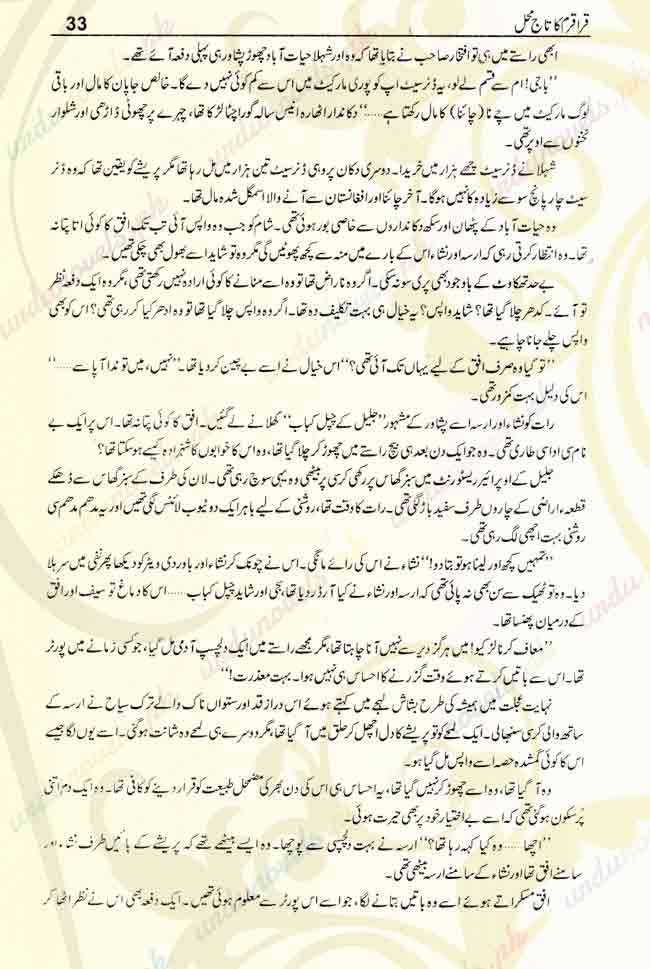 قراقرم کا تاج محل
33
ابھی راستے میں ہی تو افتخار صاحب نے بتایا تھا کہ وہ اور شہلا حیات آباد چھوڑ پشاور ہی پہلی دفعہ آئے تھے۔
’’باجی! ام سے قسم لے لو، یہ ڈنر سیٹ اپ کو پوری مارکیٹ میں اس سے کم کوئی نہیں دے گا۔ خالص جاپان کا مال اور باقی
لوگ مارکیٹ میں چے نا (چائنا) کا مال رکھتا ہے.....‘‘ دکاندار اٹھارہ انیس سالہ گورا چٹا لڑکا تھا، چہرے پر چھوٹی ڈاڑھی اور شلوار
ٹخنوں سے اوپر تھی۔
شہلا نے ڈنر سیٹ چھے ہزار میں خریدا۔ دوسری دکان پر وہی ڈنر سیٹ تین ہزار میں مل رہا تھا مگر پریشے کو یقین تھا کہ وہ ڈنر
سیٹ چار پانچ سو سے زیادہ کا نہیں ہوگا۔ آخر چائنا اور افغانستان سے آنے والا اسمگل شدہ مال تھا۔
وہ حیات آباد کے پٹھان اور سکھ دکانداروں سے خاصی بور ہوئی تھی۔ شام کو جب وہ واپس آئی تب تک افق کا کوئی اتا پتا نہ
تھا۔ وہ انتظار کرتی رہی کہ ارسہ اور نشاء اس کے بارے میں منہ سے کچھ پھوٹیں گی مگر وہ تو شاید اسے بھول بھی چکی تھیں۔
بے حد تھکاوٹ کے باوجود بھی پری سو نہ سکی۔ اگر وہ ناراض تھا تو وہ اسے منانے کا کوئی ارادہ نہیں رکھتی تھی، مگر وہ ایک دفعہ نظر
تو آئے۔ کدھر چلا گیا تھا؟ شاید واپس؟ یہ خیال ہی بہت تکلیف دہ تھا۔ اگر وہ واپس چلا گیا تھا تو وہ ادھر کیا کر رہی تھی؟ اس کو بھی
واپس چلے جانا چاہیے۔
’’تو گیا وہ صرف افق کے لیے یہاں تک آئی تھی؟‘‘ اس خیال نے اسے بے چین کر دیا تھا۔ ’’نہیں، میں تو ندا آپا سے.....‘‘
اس کی دلیل بہت کمزور تھی۔
رات کو نشاء اور ارسہ اسے پشاور کے مشہور ’’جلیل کے چپل کباب‘‘ کھلانے لے گئیں۔ افق کا کوئی پتا نہ تھا۔ اس پر ایک بے
نام سی اداسی طاری تھی۔ وہ جو ایک دن بعد ہی بیچ راستے میں چھوڑ کر چلا گیا تھا، وہ اس کا خوابوں کا شہزادہ کیسے ہو سکتا تھا؟
جلیل کے اوپن ایئر ریسٹورنٹ میں سبز گھاس پر رکھی کرسی پر بیٹھی وہ یہی سوچ رہی تھی۔ لان کی طرف کے سبز گھاس سے ڈھکے
قطعہء اراضی کے چاروں طرف سفید باڑ لگی تھی۔ رات کا وقت تھا، روشنی کے لیے باہر ایک دو ٹیوب لائٹس لگی تھیں اور یہ مدھم مدھم سی
روشنی بہت اچھی لگ رہی تھی۔
’’تمہیں کچھ اور لینا ہو تو بتا دو!‘‘ نشاء نے اس کی رائے مانگی۔ اس نے چونک کر نشاء اور باوردی ویٹر کو دیکھا پھر نفی میں سر ہلا
دیا۔ وہ تو ٹھیک سے سن بھی نہ پائی تھی کہ ارسہ اور نشاء نے کیا آرڈر دیا تھا، یخنی اور شاید چپل کباب..... اس کا دماغ تو سیف اور افق
کے درمیان پھنسا تھا۔
’’معاف کرنا لڑکیو! میں ہرگز دیر سے نہیں آنا چاہتا تھا، مگر مجھے راستے میں ایک دلچسپ آدمی مل گیا، جو کسی زمانے میں پورٹر
تھا۔ اس سے باتیں کرتے ہوئے وقت گزرنے کا احساس ہی نہیں ہوا۔ بہت معذرت!‘‘
نہایت عجلت میں ہمیشہ کی طرح بشاش لہجے میں کہتے ہوئے اس دراز قد اور ستواں ناک والے ترک سیاح نے ارسہ کے
ساتھ والی کرسی سنبھالی۔ ایک لمحے کو تو پریشے کا دل اچھل کر حلق میں آ گیا تھا، مگر دوسرے ہی لمحے وہ شانت ہو گئی۔ اسے یوں لگا جیسے
اس کا کوئی گمشدہ حصہ اسے واپس مل گیا ہو۔
وہ آ گیا تھا، وہ اسے چھوڑ کر نہیں گیا تھا، یہ احساس ہی اس کی دن بھر کی مضمحل طبیعت کو قرار دینے کو کافی تھا۔ وہ ایک دم اتنی
پرسکون ہو گئی تھی کہ اسے بے اختیار خود پر بھی حیرت ہوئی۔
’’اچھا..... وہ کیا کہہ رہا تھا؟‘‘ ارسہ نے بہت دلچسپی سے پوچھا۔ وہ ایسے بیٹھے تھے کہ پریشے کے بائیں طرف نشاء اور
سامنے افق تھا اور نشاء کے سامنے ارسہ بیٹھی تھی۔
افق مسکراتے ہوئے اسے وہ باتیں بتانے لگا، جو اسے اس پورٹر سے معلوم ہوئی تھیں۔ ایک دفعہ بھی اس نے نظر اٹھا کر